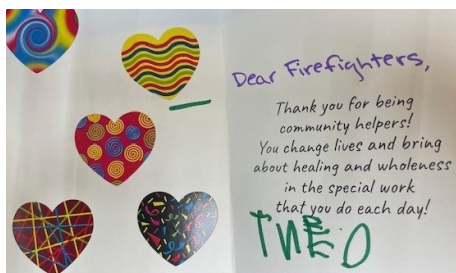 Dear Firefighters,
Thank you for being
community helpers!
You change lives and bring
about healing and wholeness
in the special work
that you do each day!